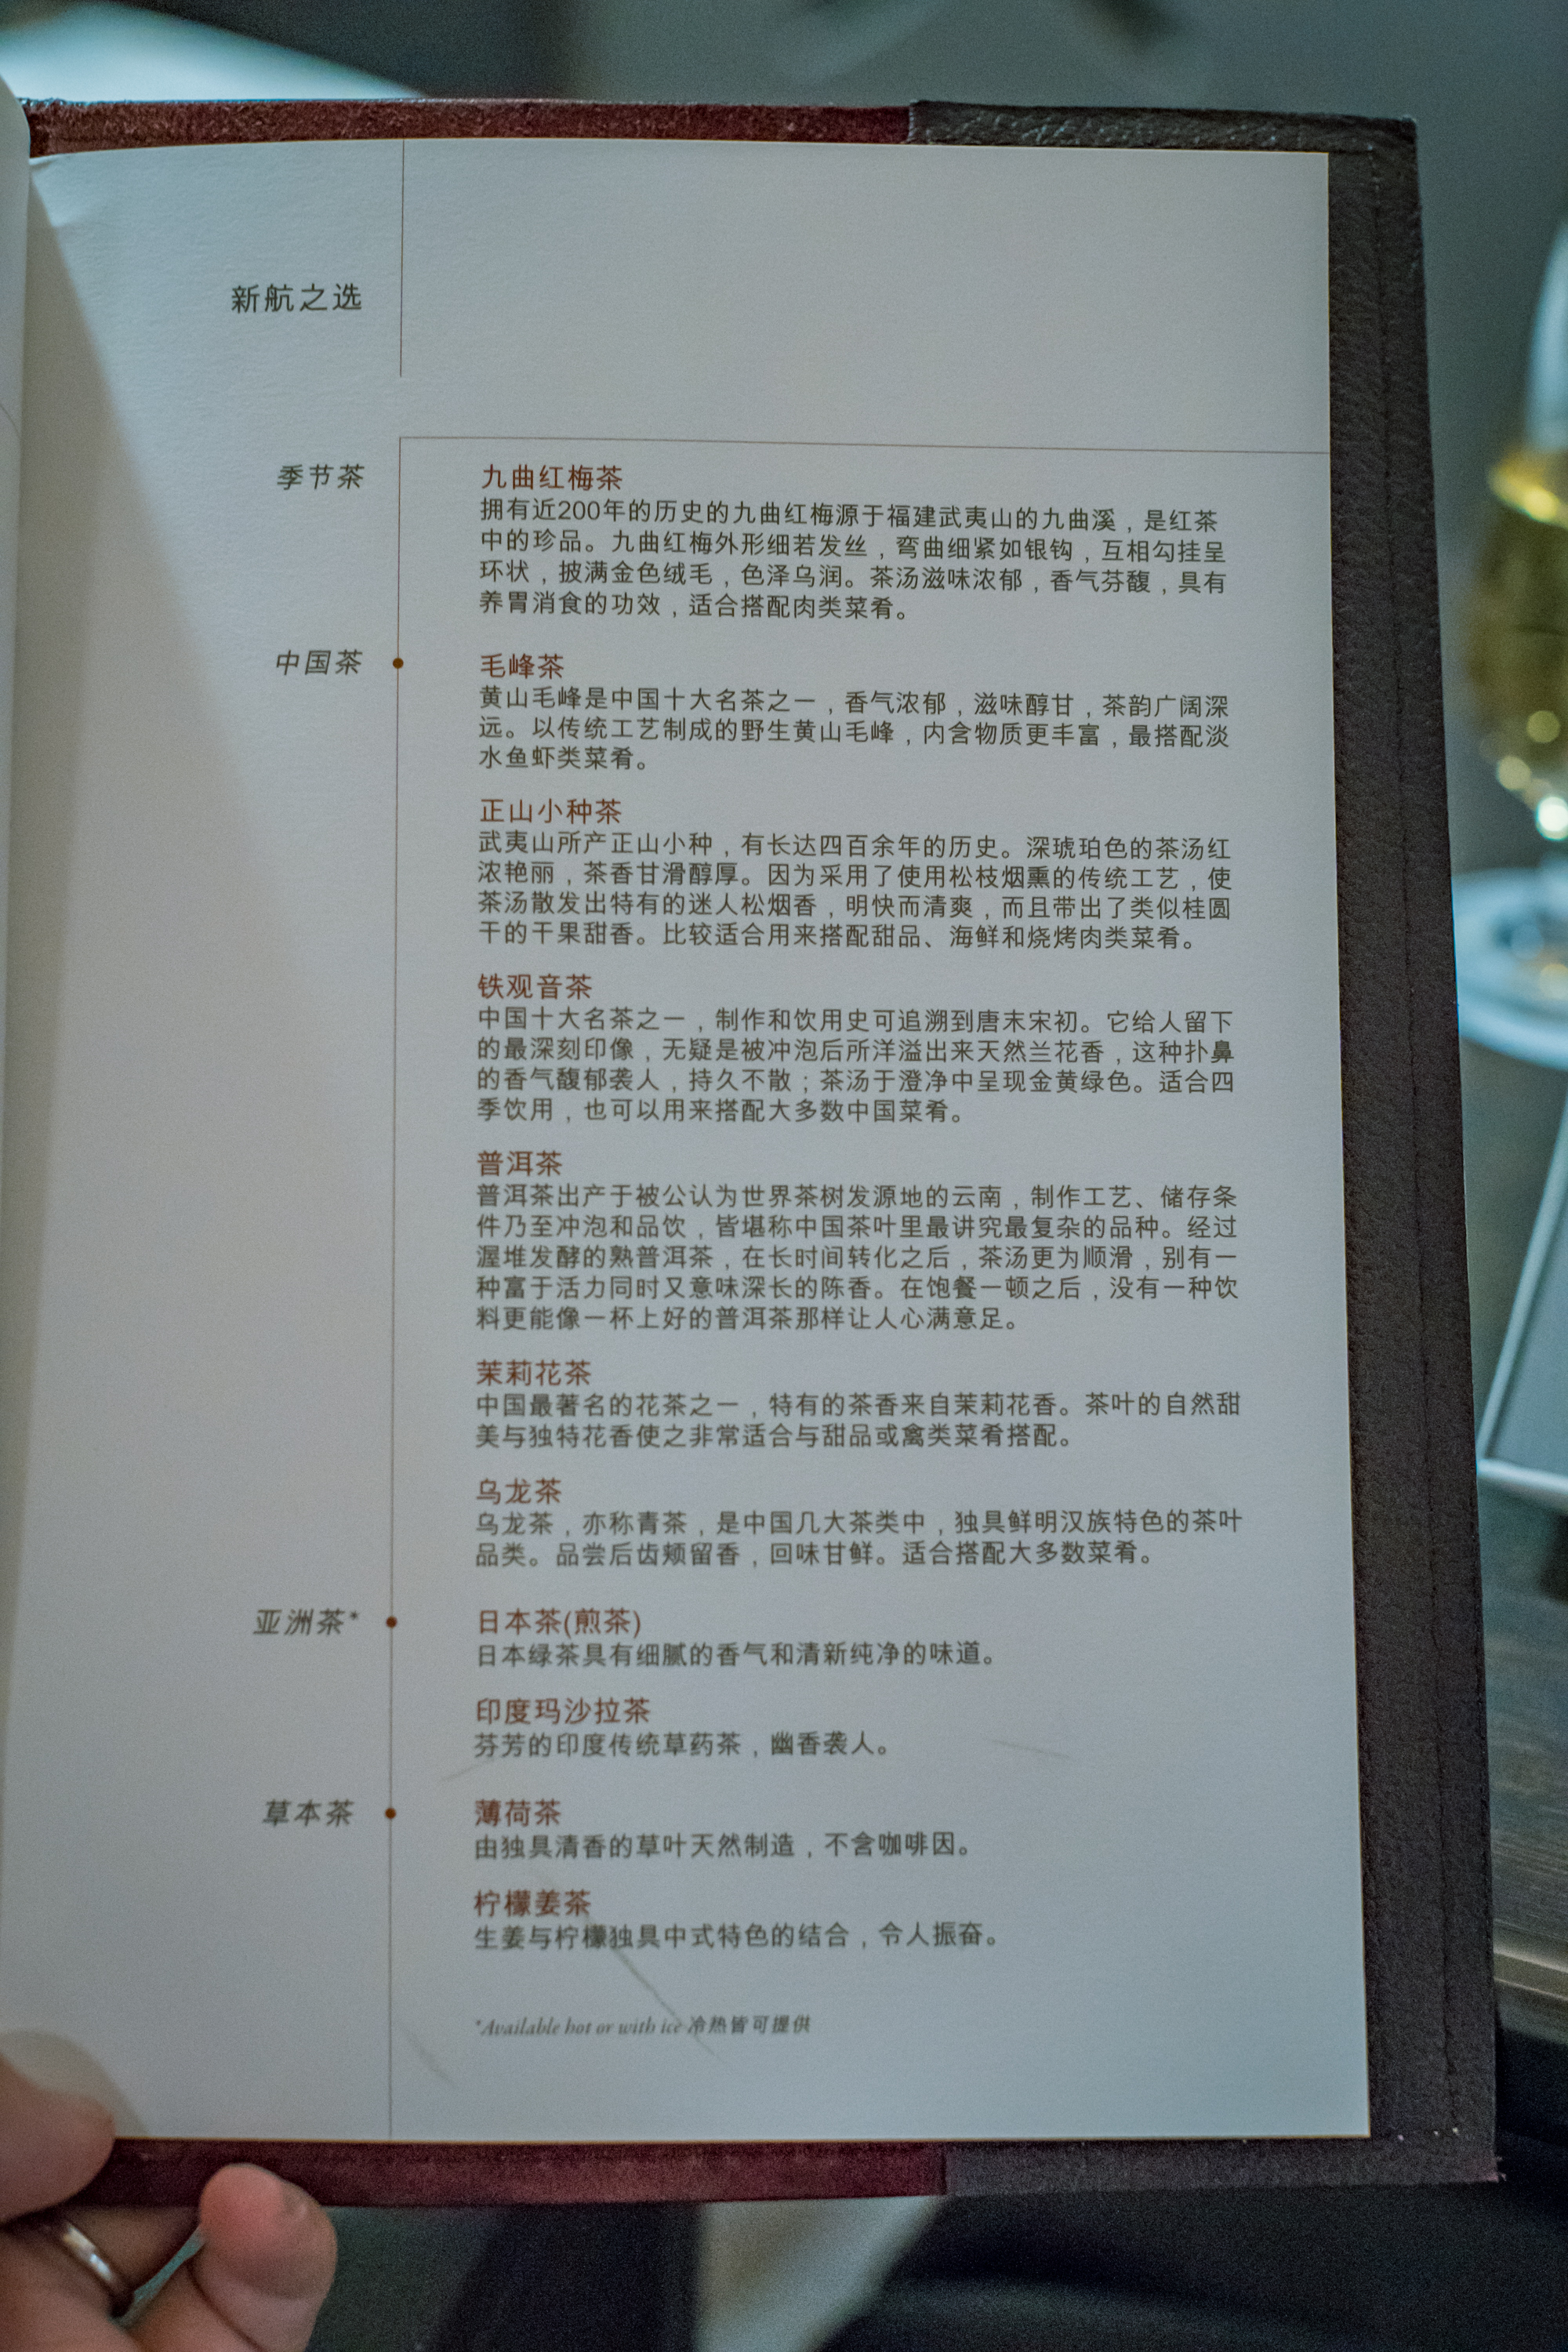 新航之选
季节茶
九曲红梅茶
拥有近200年的历史的九曲红梅源于福建武夷山的九曲溪，是红茶
中的珍品。九曲红梅外形细若发丝，弯曲细紧如银钩，互相勾挂呈
环状，披满金色绒毛，色泽乌润。茶汤滋味浓郁，香气芬馥，具有
养胃消食的功效，适合搭配肉类菜肴。
中国茶
毛峰茶
黄山毛峰是中国十大名茶之一，香气浓郁，滋味醇甘，茶韵广阔深
远。以传统工艺制成的野生黄山毛峰，内含物质更丰富，最搭配淡
水鱼虾类菜肴。
正山小种茶
武夷山所产正山小种，有长达四百余年的历史。深琥珀色的茶汤红
浓艳丽，茶香甘滑醇厚。因为采用了使用松枝烟熏的传统工艺，使
茶汤散发出特有的迷人松烟香，明快而清爽，而且带出了类似桂圆
干的干果甜香。比较适合用来搭配甜品、海鲜和烧烤肉类菜肴。
铁观音茶
中国十大名茶之一，制作和饮用史可追溯到唐末宋初。它给人留下
的最深刻印像，无疑是被冲泡后所洋溢出来天然兰花香，这种扑鼻
的香气馥郁袭人，持久不散；茶汤于澄净中呈现金黄绿色。适合四
季饮用，也可以用来搭配大多数中国菜肴。
普洱茶
普洱茶出产于被公认为世界茶树发源地的云南，制作工艺、储存条
件乃至冲泡和品饮，皆堪称中国茶叶里最讲究最复杂的品种。经过
渥堆发酵的熟普洱茶，在长时间转化之后，茶汤更为顺滑，别有一
种富于活力同时又意味深长的陈香。在饱餐一顿之后，没有一种饮
料更能像一杯上好的普洱茶那样让人心满意足。
茉莉花茶
中国最著名的花茶之一，特有的茶香来自茉莉花香。茶叶的自然甜
美与独特花香使之非常适合与甜品或禽类菜肴搭配。
乌龙茶
乌龙茶，亦称青茶，是中国几大茶类中，独具鲜明汉族特色的茶叶
品类。品尝后齿颊留香，回味甘鲜。适合搭配大多数菜肴。
亚洲茶*
日本茶(煎茶)
日本绿茶具有细腻的香气和清新纯净的味道。
印度玛沙拉茶
芬芳的印度传统草药茶，幽香袭人。
草本茶
薄荷茶
由独具清香的草叶天然制造，不含咖啡因。
柠檬姜茶
生姜与柠檬独具中式特色的结合，令人振奋。
*Available hot or with ice 冷热皆可提供